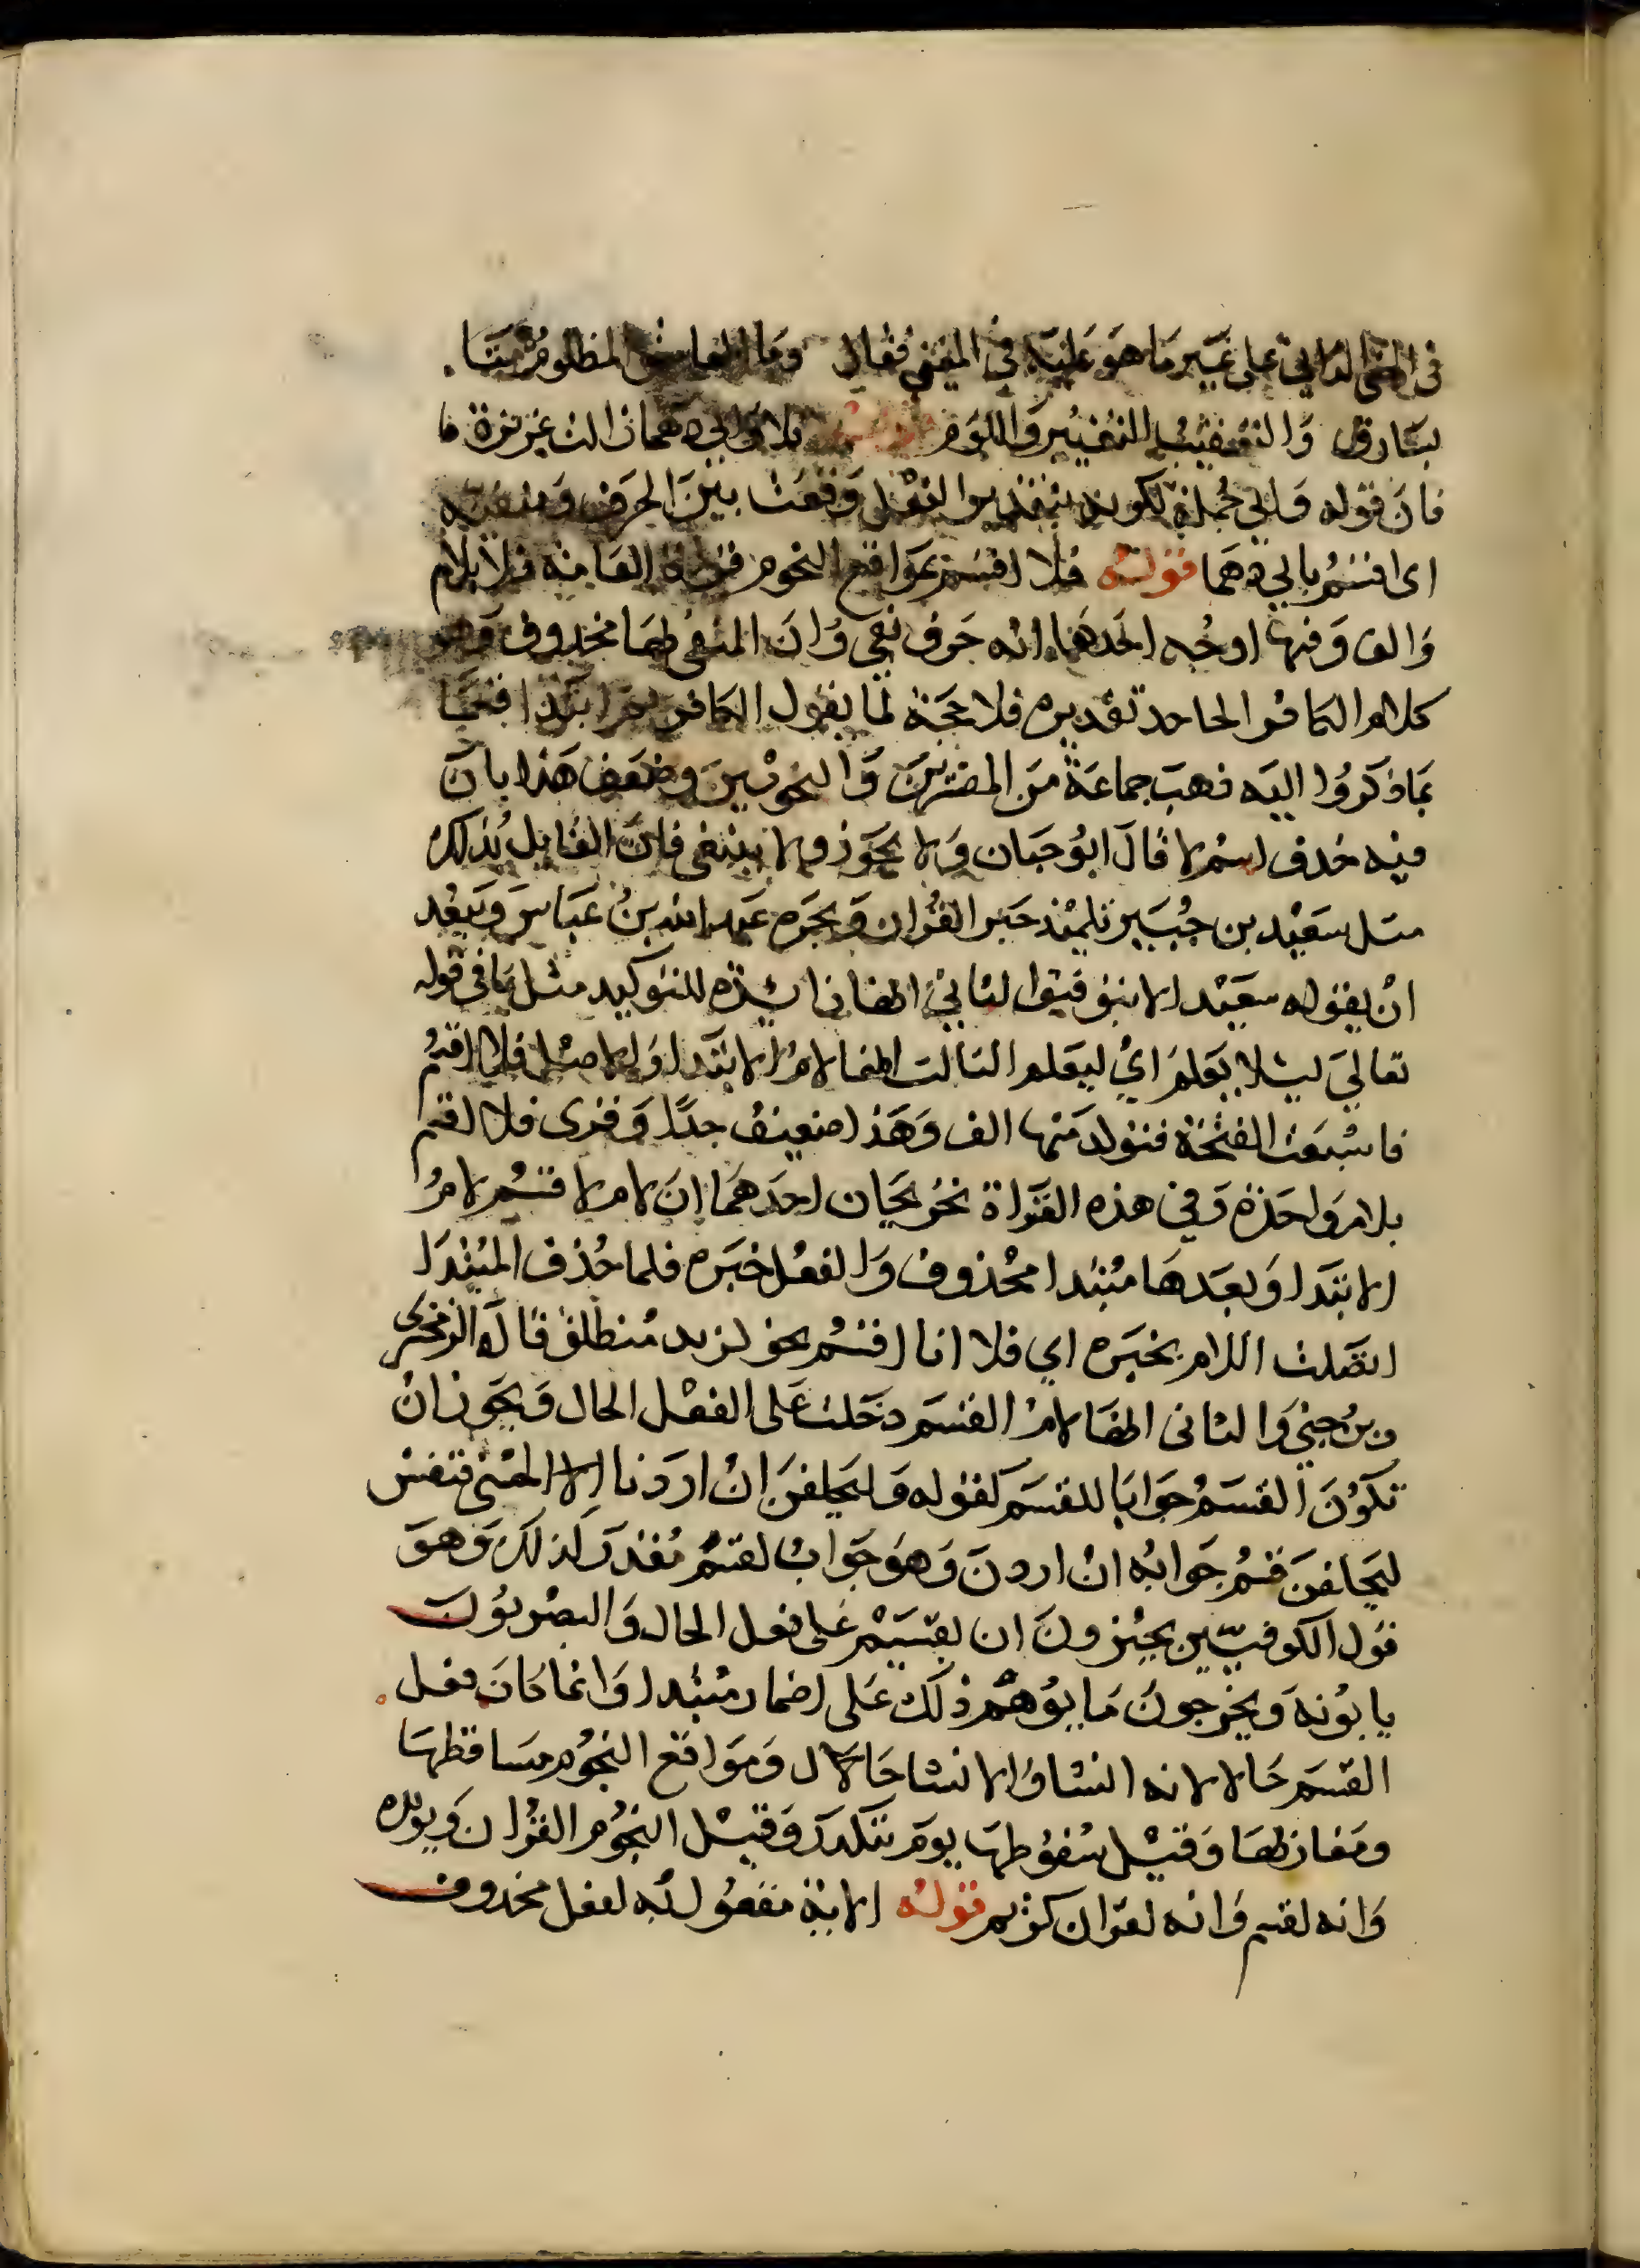 على غير ما هو عليه في المعنى فقال وما المظلوم منا.
بسارق والتعقيب التغيير واللوم فلا وابي دهمان التـ عزيزة ما
فان قوله وابي جملة لكونه بتقدير الفعل وقعت بين الحرف ومنفيه
اى اقسم بابي دهما قوله فلا اقسم بمواقع النجوم قراة العامة فلا بلام
والف وفيها اوجه احدهما انه حرف نفي وان المنفي بها محذوف وهو
كلام الكافر الجاحد تقديره فلا حجة لما يقول الكافر ثم ابتدا قسما
بما ذكروا اليه ذهب جماعة من المفسرين والنحويين وضعف هذا بان
فيه حذف اسم لا قال ابو حيان ولا يجوز ولا ينبغي فان القايل بذلك
مثل سعيد بن جبير تلميذ حبر القران وبحره عبد الله بن عباس ويبعد
ان يقوله سعيد الا بتوقيف الثاني انها زايدة للتوكيد مثلها في قوله
تعالي ليلا يعلم اي ليعلم الثالث انها لام الابتدا والاصل فلاقسم
فاشبعت الفتحة فتولد منها الف وهذا ضعيف جدا وقرى فلا لقسم
بلام واحدة وفي هذه القراة تخريجان احدهما ان لام لا قسم لام
الابتدا وبعدها مبتدا محذوف والفعل خبره فلما حذف المبتدا
اتصلت اللام بخبره اي فلا انا اقسم نحو لزيد منطلق قاله الزمخشرى
وبن جني والثانى انها لام القسم دخلت على الفعل الحال ويجوز ان
تكون القسم جوابا للقسم كقوله وليحلفن ان اردنا الا الحسنى فنفس
ليحلفن قسم جوابه ان اردن وهو جواب لقسم مقدر كذلك وهو
قول الكوفيين يجيزون ان يقسم على فعل الحال والبصريون
يابونه ويخرجون ما يوهم ذلك على اضمار مبتدا وانما كان فعل
القسم حالا لانه انشا والانشا حال ومواقع النجوم مساقطها
ومغازيها وقيل سقوطها يوم تنكدر وقيل النجوم القران ويويده
وانه لقسم وانه لقران كريم قوله الاية مفعول له لفعل محذوف